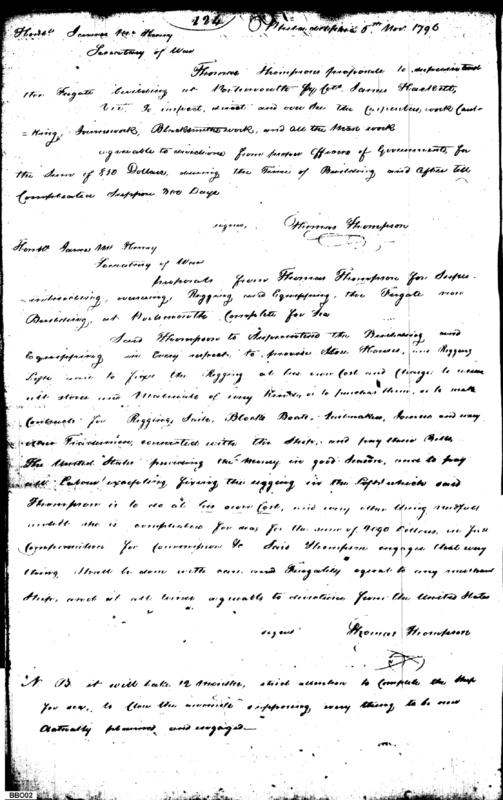 124
Philadelphia 5th Nov. 1796
Honble James McHenry
Secretary of War
Thomas Thompson proposals to superintend
the Frigate building at Portsmouth by Colo. James Hackett,
Viz. To inspect, direct and over see the Carpenters, work Caul-
=king, Joinerwork, Blacksmiths work, and all the Mast work
agreeable to directions from proper Officers of Government, for
the sum of 850 Dollars, during the Time of Building and after till
Compleated suppose 300 Days
signed, Thomas Thompson
Honble James McHenry
Secretary of War
proposals from Thomas Thompson for Super-
intending, overseeing, Rigging and Equipping, the Frigate now
Building, at Portsmouth Complete for Sea
Said Thompson to Superintend the Building and
Equipping in Every respect, to provide Store Houses, and Rigging
Lofts and to fix the Rigging at his own Cost and Charge, to receive
all stores and Materials of every Kind, or to purchase them, or to make
Contracts for Rigging, Sails, Blocks Boats, Sailmakers, Joiners and every
other Tradesmen, connected with the Ship, and pay their Bills,
The United States providing the money in good Season, and to pay
all Labour excepting fixing the rigging in the Lofts which said
Thompson is to do at his own Cost, and every other thing needful
untill she is compleated for sea, for the sum of Dollars, in full
Compensation for Said Thompson engages that every
thing shall be done with care and Frugality equal to any merchant
Ship, and at all times agreeable to directions from the United States
signed Thomas Thompson
N B. it will take 12 months, strict attention to Complete the Ship
for sea, to close the accounts supposing every thing to be now
Actually planned and engaged—
BBO02